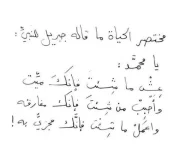 مختصر الحياة ما قاله جبريل للنبيّ:
يا محمّد:
عِشْ ما شِئتَ فإنّكَ ميّت
وأحبِبْ من شِئتَ فإنّكَ مفارقه
واعمَلْ ما شِئتَ فإنّكَ مجزيٌّ به!